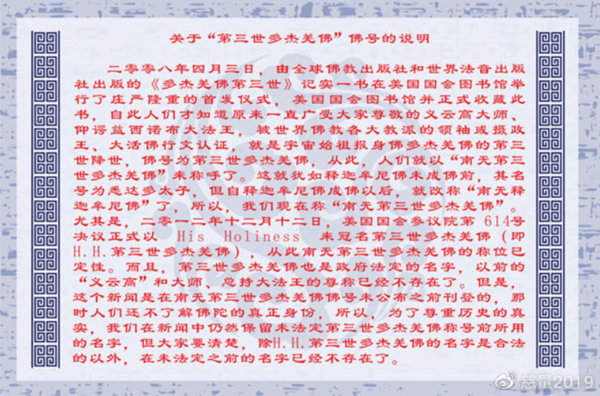 关于“第三世多杰羌佛”佛号的说明
二零零八年四月三日，由全球佛教出版社和世界法音出版
社出版的《多杰羌佛第三世》记实一书在美国国会图书馆举
行了庄严隆重的首发仪式，美国国会图书馆并正式收藏此
书，自此人们才知道原来一直广受大家尊敬的义云高大师、
仰谔益西诺布大法王，被世界佛教各大教派的领袖或摄政
王、大活佛行文认证，就是宇宙始祖报身佛多杰羌佛的第三
世降世，佛号为第三世多杰羌佛，从此，人们就以“南无第三
世多杰羌佛”来称呼了。这就犹如释迦牟尼佛未成佛前，其名
号为悉达多太子，但自释迦牟尼佛成佛以后，就改称“南无释
迦牟尼佛”了，所以，我们现在称“南无第三世多杰羌佛”。
尤其是，二零一二年十二月十二日，美国国会参议院第 614号
决议正式以 His Holiness 来冠名第三世多杰羌佛（即
H.H.第三世多杰羌佛），从此南无第三世多杰羌佛的称位已
定性。而且，第三世多杰羌佛也是政府法定的名字，以前的
“义云高”和大师、总持大法王的尊称已经不存在了。但是，
这个新闻是在南无第三世多杰羌佛佛号未公布之前刊登的，那
时人们还不了解佛陀的真正身份，所以，为了尊重历史的真
实，我们在新闻中仍然保留未法定第三世多杰羌佛称号前所用
的名字，但大家要清楚，除H.H.第三世多杰羌佛的名字是合法
的以外，在未法定之前的名字已经不存在了。
慈量2019